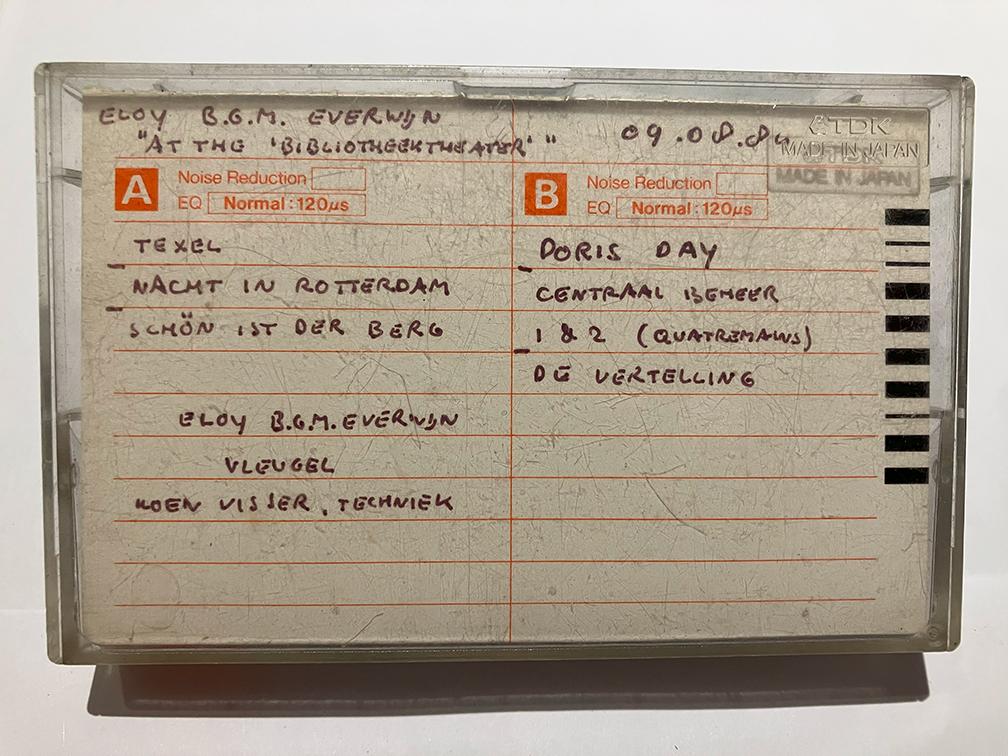 ELOY B.G.M. EVERWIJN
"AT THE 'BIBLIOTHEEKTHEATER' "
09.08.84
TDK
MADE IN JAPAN
MADE IN JAPAN
A
Noise Reduction
EQ Normal:120μs
TEXEL
NACHT IN ROTTERDAM
SCHÖN IST DER BERG
ELOY B.G.M. EVERWIJN
VLEUGEL
KOEN VISSER, TECHNIEK
B
Noise Reduction
EQ Normal:120μs
DORIS DAY
CENTRAAL BEHEER
1 & 2 (QUATREMAINS)
DE VERTELLING